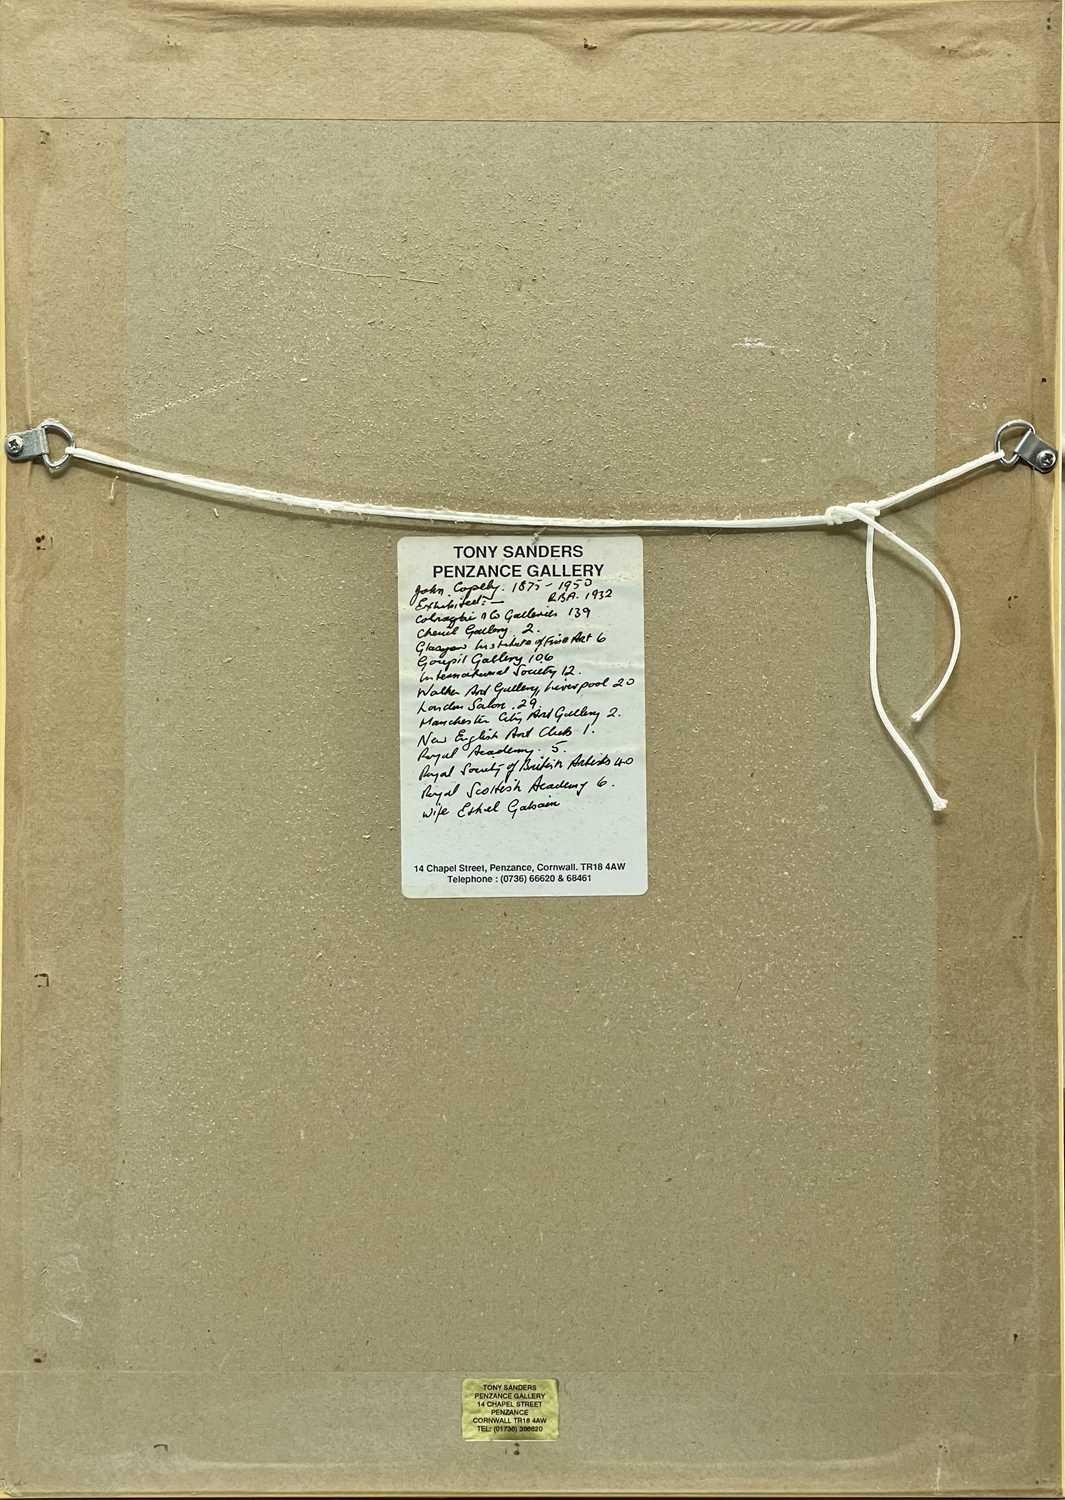 TONY SANDERS
PENZANCE GALLERY
John Copley. 1875 - 1950
Exhibited:- RBA. 1932
Colnaghi & Co Galleries 139
Chenil Gallery 2.
Glasgow Institute of Fine Art 6
Goupil Gallery 106
International Society 12.
Walker Art Gallery, Liverpool 20
London Salon. 29.
Manchester City Art Gallery 2.
New English Art Club 1.
Royal Academy. 5.
Royal Society of British Artists 40
Royal Scottish Academy 6.
Wife Ethel Gabain
14 Chapel Street, Penzance, Cornwall. TR18 4AW
Telephone : (0736) 66620 & 68461
TONY SANDERS
PENZANCE GALLERY
14 CHAPEL STREET
PENZANCE
CORNWALL TR18 4AW
TEL: (01736) 366620